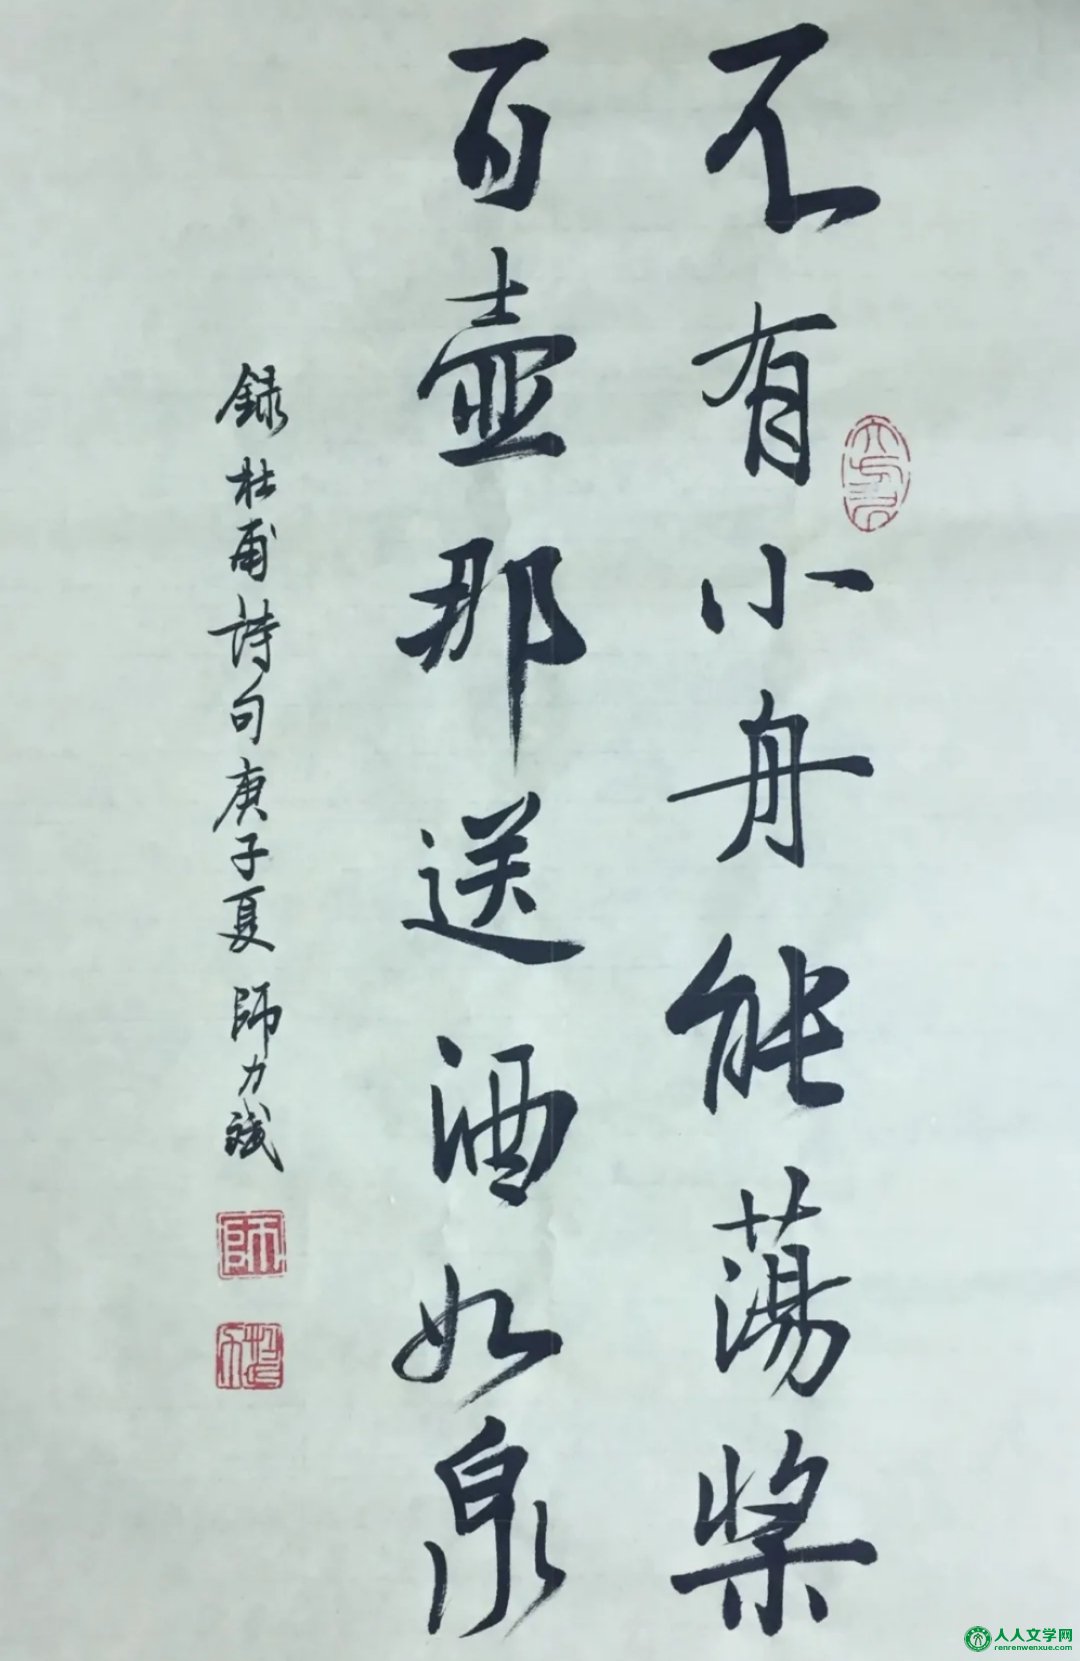 不有小舟能蕩槳
百壺那送酒如泉
録杜甫詩句庚子夏師力斌
師
人人文学网
renrenwenxue.com